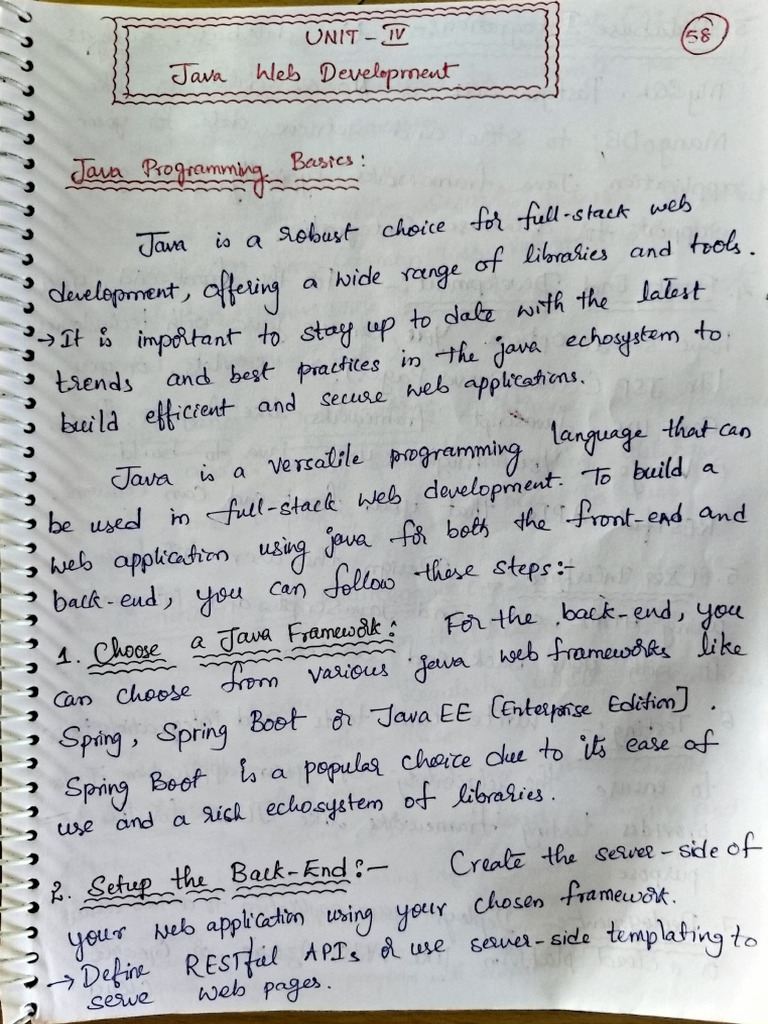 UNIT - IV
58
Java Web Development
Java Programming Basics:
Java is a robust choice for full-stack web
development, offering a wide range of libraries and tools.
→ It is important to stay up to date with the latest
trends and best practices in the java echosystem to
build efficient and secure web applications.
Java is a versatile programming language that can
be used in full-stack web development. To build a
web application using java for both the front-end and
back-end, you can follow these steps:-
1. Choose a Java Framework: For the back-end, you
can choose from various java web frameworks like
Spring, Spring Boot or Java EE [Enterprise Edition].
Spring Boot is a popular choice due to its ease of
use and a rich echosystem of libraries.
2. Setup the Back-End:- Create the server-side of
your web application using your chosen framework.
→ Define RESTful APIs or use server-side templating to
serve web pages.